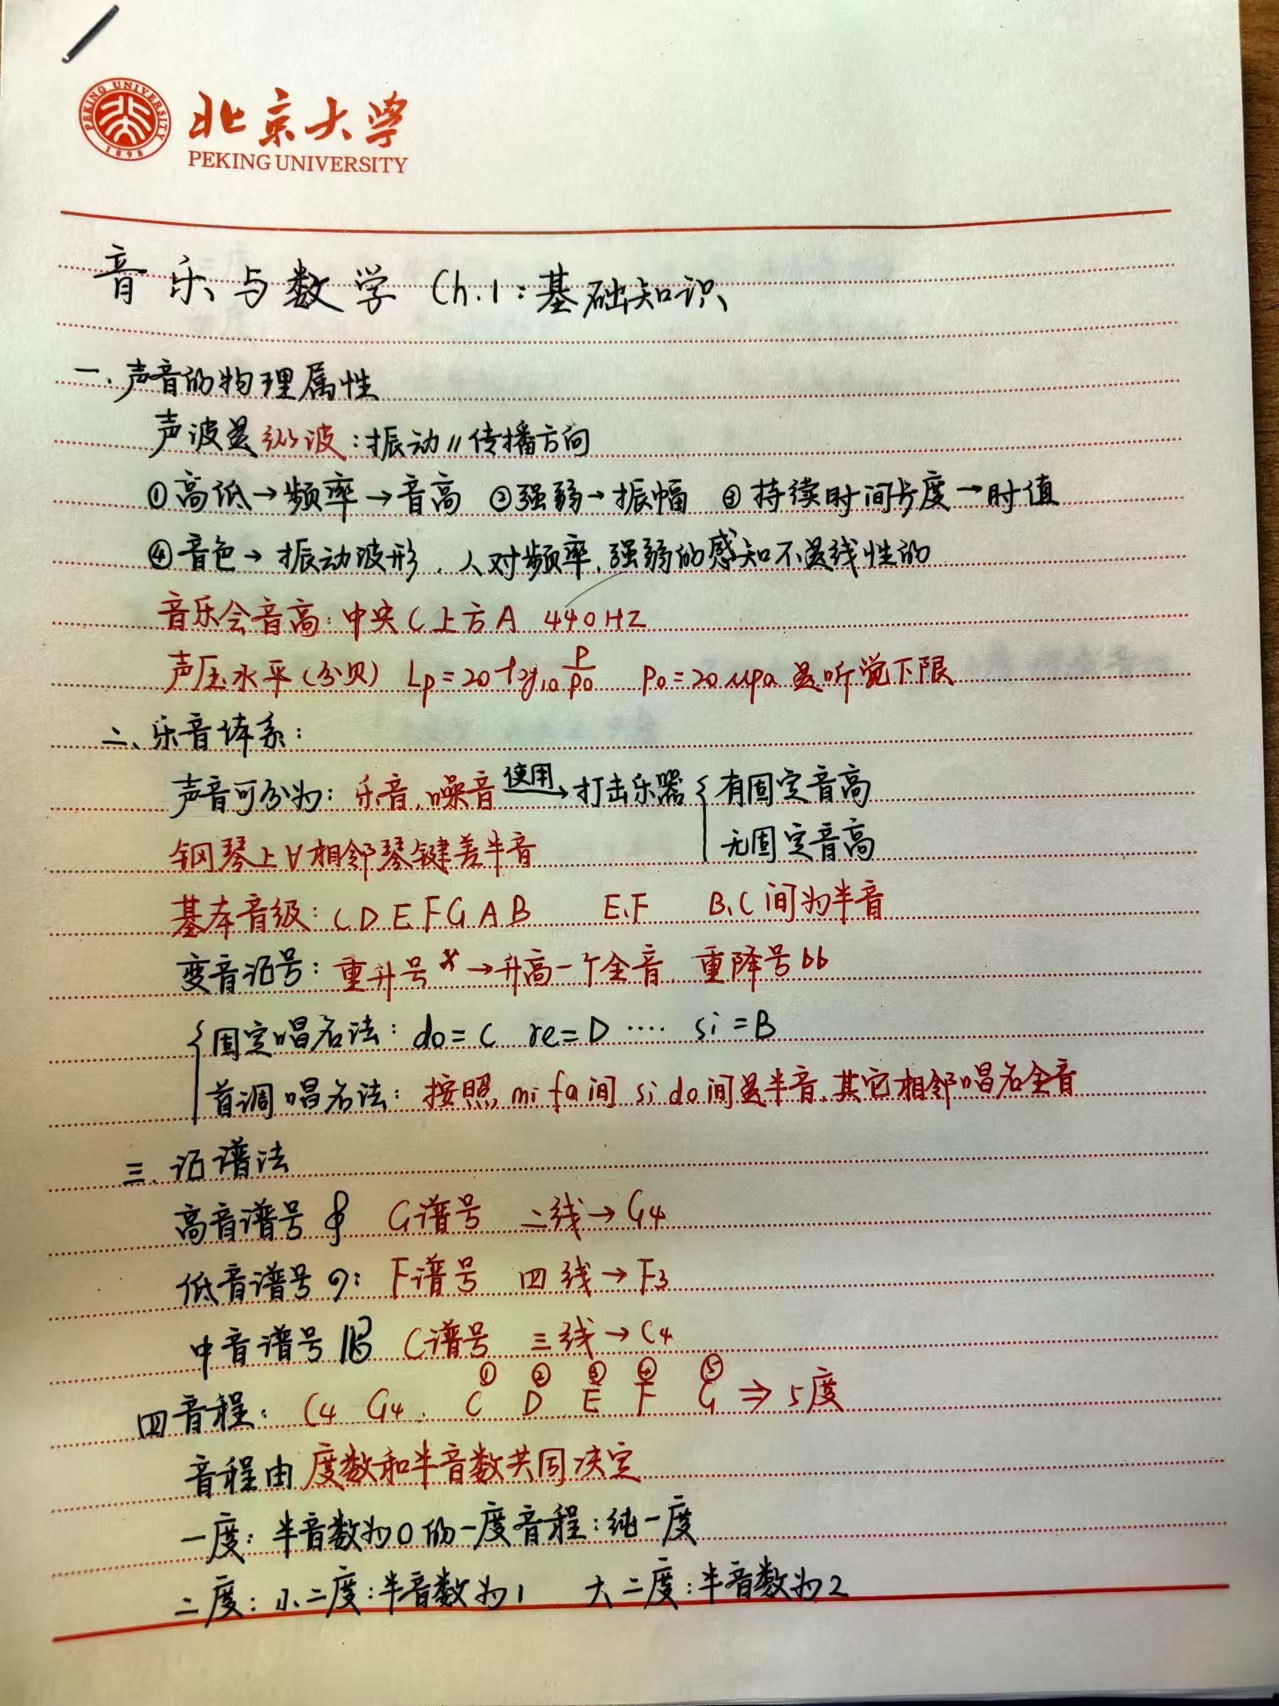 北京大学
PEKING UNIVERSITY
PEKING UNIVERSITY
1898
音乐与数学 Ch.1：基础知识
一、声音的物理属性
声波是纵波：振动 // 传播方向
①高低→频率→音高 ②强弱→振幅 ③持续时间长度→时值
④音色→振动波形，人对频率、强弱的感知不是线性的
音乐会音高：中央C上方A 440HZ
声压水平（分贝） Lp=20 log10 P/P0 P0=20μpa 是听觉下限
二、乐音体系：
声音可分为：乐音、噪音 使用→ 打击乐器 { 有固定音高
无固定音高
钢琴上∀相邻琴键差半音
基本音级：C D E F G A B E、F B、C间为半音
变音记号：重升号 x→升高一个全音 重降号bb
{ 固定唱名法：do=C re=D …. si=B
首调唱名法：按照 mi fa间 si do间是半音，其它相邻唱名全音
三、记谱法
高音谱号 𝄞 G谱号 二线→G4
低音谱号 𝄢 F谱号 四线→F3
中音谱号 𝄡 C谱号 三线→C4
① ② ③ ④ ⑤
四音程：C4 G4. C D E F G ⇒ 5度
音程由度数和半音数共同决定
一度：半音数为0的一度音程：纯一度
二度：小二度：半音数为1 大二度：半音数为2